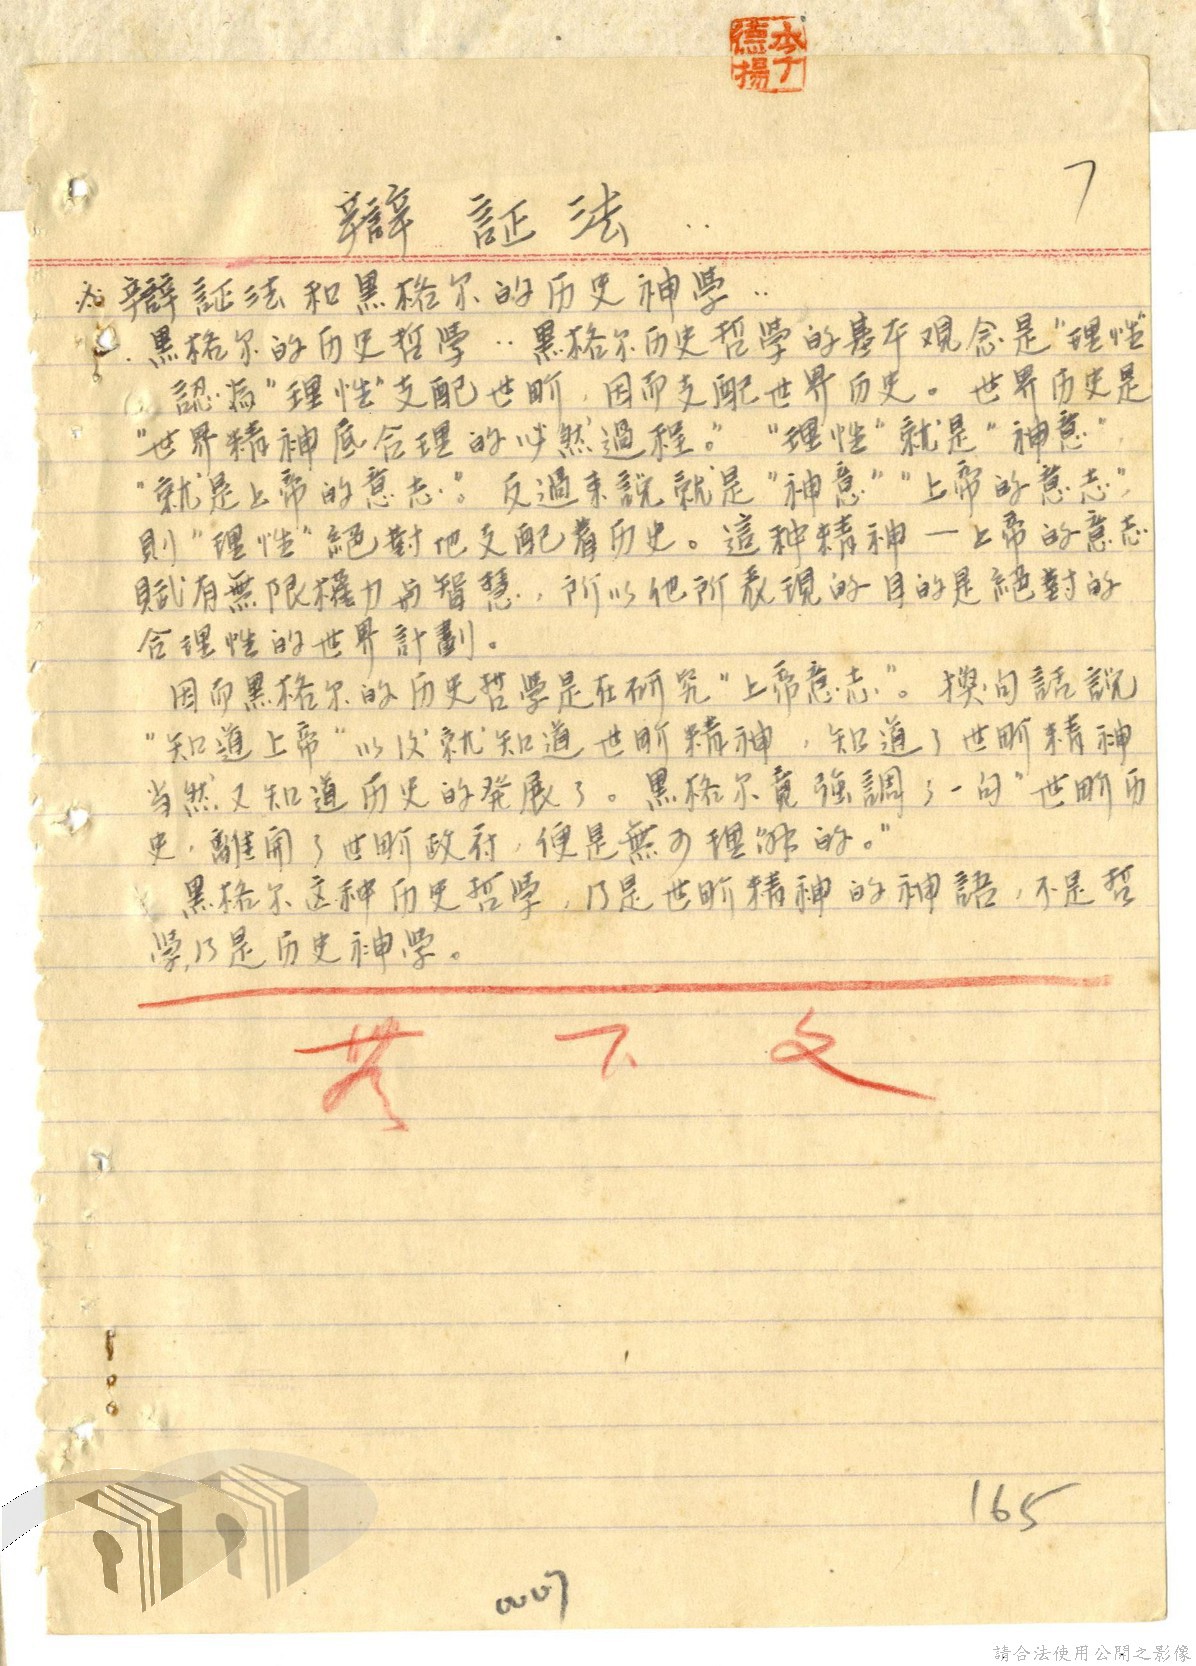 李德揚
7
辯証法
辯証法和黑格尔的历史神學..
黑格尔的历史哲學..黑格尔历史哲學的基本观念是"理性"
認為"理性"支配世畍,因而支配世界历史。世界历史是
"世界精神底合理的必然過程。""理性"就是"神意"
"就是上帝的意志"。反過来説就是"神意""上帝的意志",
則"理性"絕對地支配着历史。這种精神—上帝的意志
賦有無限權力与智慧,所以他所表現的目的是絕對的
合理性的世界計劃。
因而黑格尔的历史哲學是在研究"上帝意志"。換句話說
"知道上帝"以後就知道世畍精神,知道了世畍精神
当然又知道历史的発展了。黑格尔竟強調了一句"世畍历
史,離開了世畍政府,便是無可理解的。"
黑格尔这种历史哲學,乃是世畍精神的神語,不是哲
學,乃是历史神學。
下文
165
0007
請合法使用公開之影像